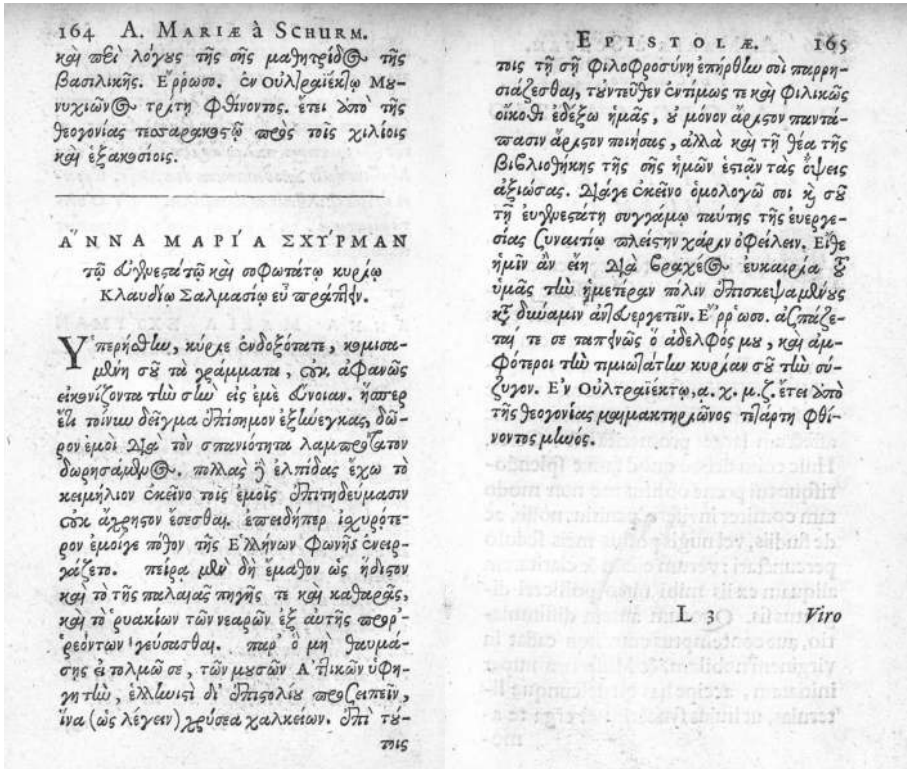 164 A. MARIÆ à SCHURM.
καὶ περὶ λόγους τῆς σῆς μαθητρίδος τῆς
βασιλικῆς. Ἔῤῥωσο. ἐν Οὐλτραϊέκτῳ Μου-
νυχιῶνος τρίτῃ φθίνοντος. ἔτει ἀπὸ τῆς
θεογονίας τεσσαρακοστῷ πρὸς τοῖς χιλίοις
καὶ ἑξακοσίοις.
ἌΝΝΑ ΜΑΡΊΑ ΣΧΎΡΜΑΝ
τῷ εὐγενεστάτῳ καὶ σοφωτάτῳ κυρίῳ
Κλαυδίῳ Σαλμασίῳ εὖ πράττειν.
Ὑπερήσθην, κύριε ἐνδοξότατε, κομισα-
μένη σοῦ τὰ γράμματα, οὐκ ἀφανῶς
εἰκονίζοντα τὴν σὴν εἰς ἐμὲ εὔνοιαν. ἧσπερ
ἔτι τοίνυν δεῖγμα ἐπίσημον ἐξήνεγκας, δῶ-
ρον ἐμοὶ διὰ τὸν σπανιότητα λαμπρότατον
δωρησάμενος. πολλὰς γὰρ ἐλπίδας ἔχω τὸ
κειμήλιον ἐκεῖνο τοῖς ἐμοῖς ἐπιτηδεύμασιν
οὐκ ἄχρηστον ἔσεσθαι, ἐπειδήπερ ἰσχυρότε-
ρον ἐμοίγε πόθον τῆς Ἑλλήνων φωνῆς ἐνειρ-
γάζετο. πείρᾳ μὲν δὴ ἔμαθον ὡς ἥδιστον
καὶ τὸ τῆς παλαιᾶς πηγῆς τε καὶ καθαρᾶς,
καὶ τὸ ῥυακίων τῶν νεαρῶν ἐξ αὐτῆς προῤ-
ῥεόντων γεύσασθαι. παρ' ὃ μὴ θαυμά-
σῃς εἰ τολμῶ σε, τῶν μουσῶν Ἀττικῶν ὑφη-
γητὴν, ἑλληνιστὶ δι' ἐπιστολίου προσειπεῖν,
ἵνα (ὡς λέγειν) χρύσεα χαλκείων. ἐπὶ τού-
τοις
EPISTOLÆ. 165
τοις τῇ σῇ φιλοφροσύνῃ ἐπήρθην σοὶ παρρη-
σιάζεσθαι, τοὐντεῦθεν ἐντίμως τε καὶ φιλικῶς
οἴκοθι ἐδέξω ἡμᾶς, οὐ μόνον ἄριστον παντά-
πασιν ἄριστον ποιήσας, ἀλλὰ καὶ τῇ θέᾳ τῆς
βιβλιοθήκης τῆς σῆς ἡμῶν ἑστιᾶν τὰς ὄψεις
ἀξιώσας. διάγε ἐκεῖνο ὁμολογῶ σοι καὶ σοῦ
τῇ εὐγενεστάτῃ συγγάμῳ ταύτης τῆς εὐεργε-
σίας συναιτίῳ πλείστην χάριν ὀφείλειν. Εἴθε
ἡμῖν ἂν εἴη διὰ βραχέος εὐκαιρία τοῦ
ὑμᾶς τὴν ἡμετέραν πόλιν ἐπισκεψαμένους
κατὰ δύναμιν ἀντευεργετεῖν. Ἔῤῥωσο. ἀσπάζε-
ταί τε σε ταπεινῶς ὁ ἀδελφός μου, καὶ ἀμ-
φότεροι τὴν τιμιωτάτην κυρίαν σοῦ τὴν σύ-
ζυγον. Ἐν Οὐλτραϊέκτῳ, α. χ. μ. ζ. ἔτει ἀπὸ
τῆς θεογονίας μαιμακτηριῶνος τετάρτῃ φθί-
νοντος μηνός.
L 3 Viro